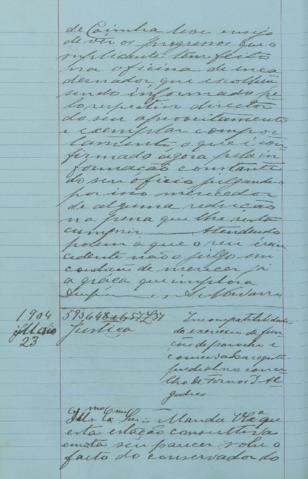 de Coimbra teve ensejo
de ver os progressos que o
supplicante tem feito
na officina de enca
dernador que escolheu
sendo informado pe
lo respectivo director
do seu aproveitamento
e exemplar compor
tamento, o que é con
firmado agora pela in
formação constante
do seu officio julgando
por isso merecedor
de alguma reducção
na pena que lhe resta
cumprir. Attendendo
porem a que o reu é rein
cidente não o julgo em
condições de merecer já
a graça que implora
1904
Maio
23
593, 648 a 657, L37
Justiça
Incompatibilidade
do exercicio de fun
ções de parocho e
conservador do regist
predial no conce
lho de Fornos d'Al
godres
Manda V. Ex.ª que
esta estação consultiva
emita seu parecer sobre o
facto do conservador do